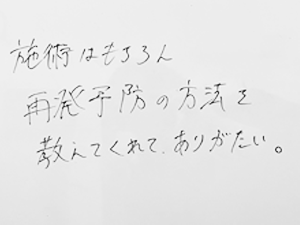 施術はもちろん
再発予防の方法を
教えてくれて、ありがたい。